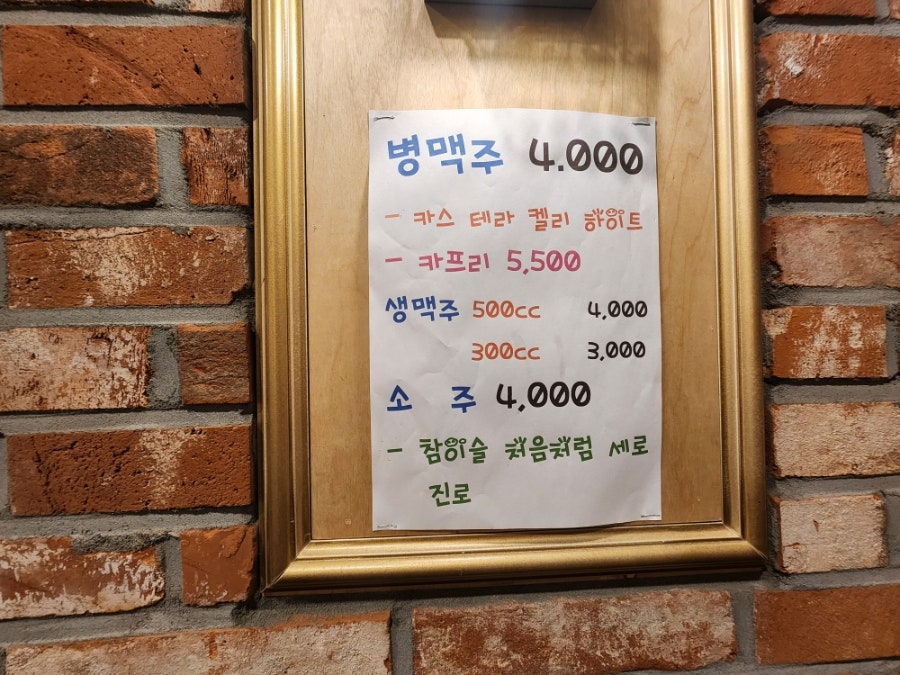 병맥주 4.000
- 카스 테라 켈리 하이트
- 카프리 5,500
생맥주 500cc 4,000
300cc 3,000
소 주 4,000
- 참이슬 처음처럼 세로
진로